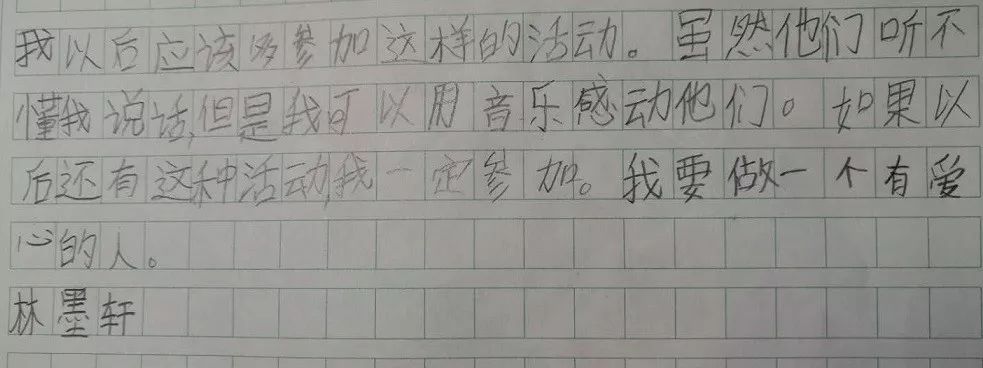 我以后应该多参加这样的活动。虽然他们听不
懂我说话,但是我可以用音乐感动他们。如果以
后还有这种活动,我一定参加。我要做一个有爱
心的人。
林墨轩